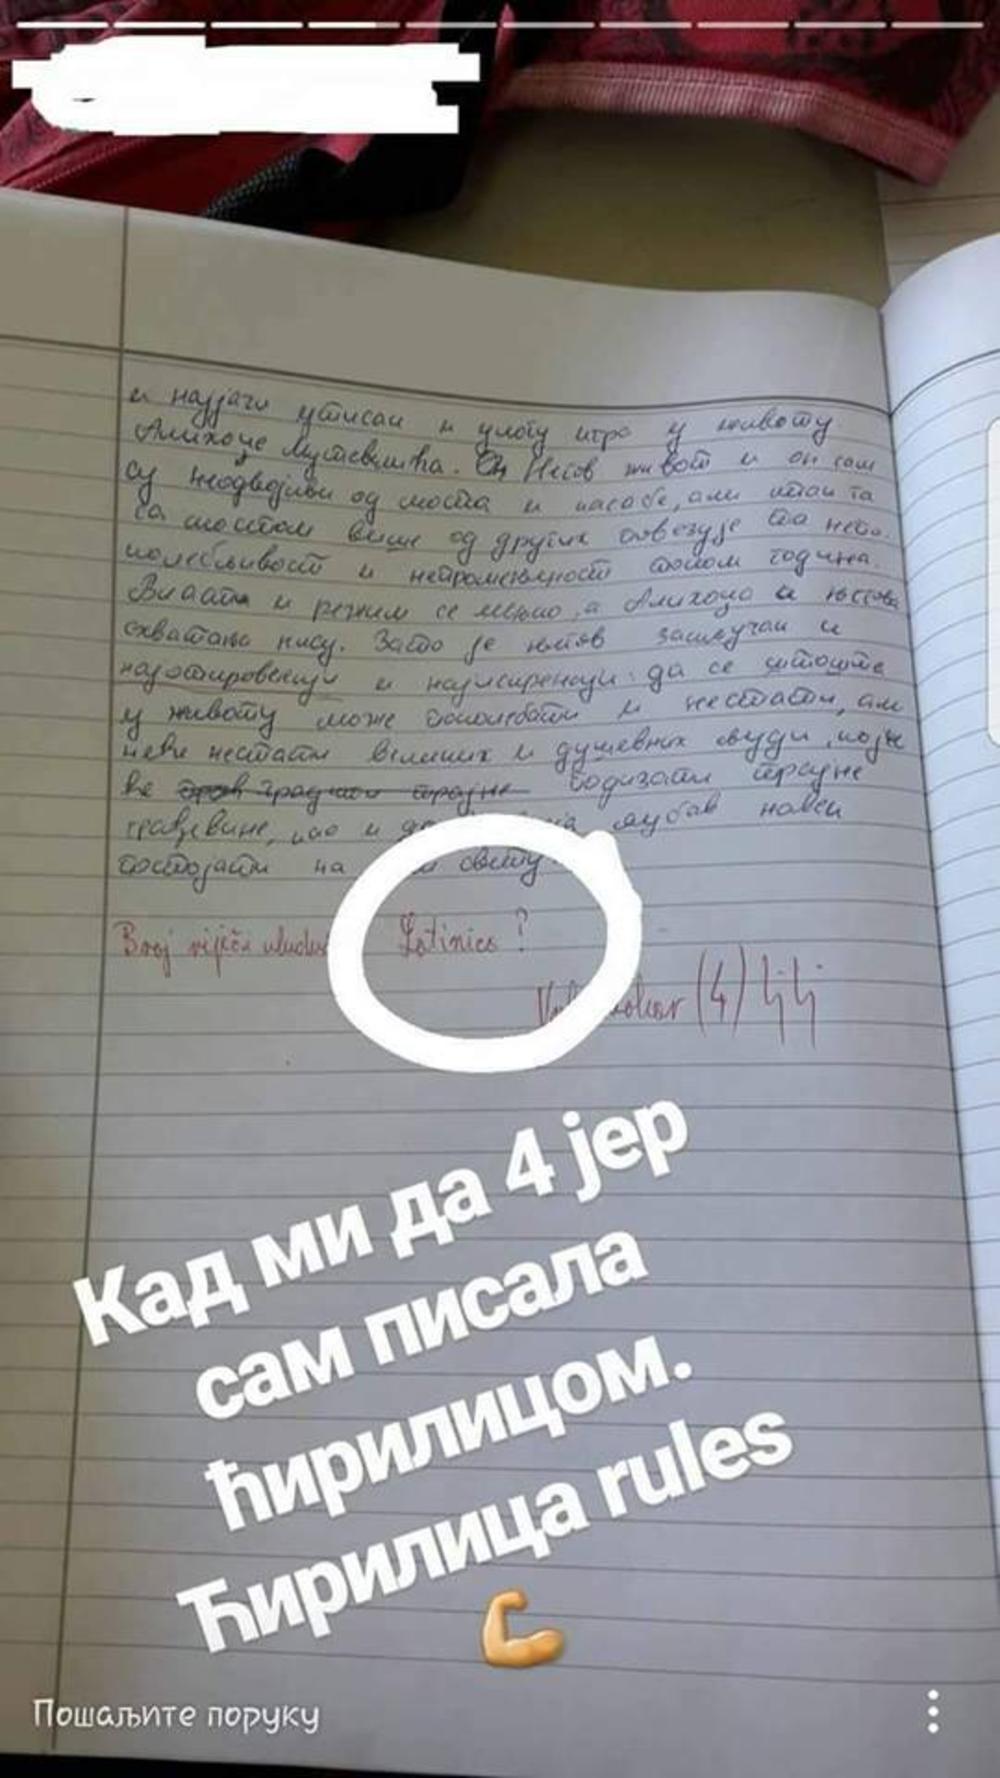 и најјачи утисак и улогу игра у животу
Алихоџе Мутевелића. Његов живот и он сам
су неодвојиви од моста и касабе, али ипак га
са мостом више од других повезује та непо-
колебљивост и непроменљивост током година.
Власти и режим се мењао, а Алихоџа и његова
схватања нису. Зато је његов закључак и
и најискренији: да се штошта
у животу може поколебати и нестати, али
неће нестати великих и душевних људи, који
ће подизати трајне
грађевине, као и да љубав навек
постојати на свету.
Broj riječi Latinica?
(4)
Кад ми да 4 јер
сам писала
ћирилицом.
Ћирилица rules
Пошаљите поруку